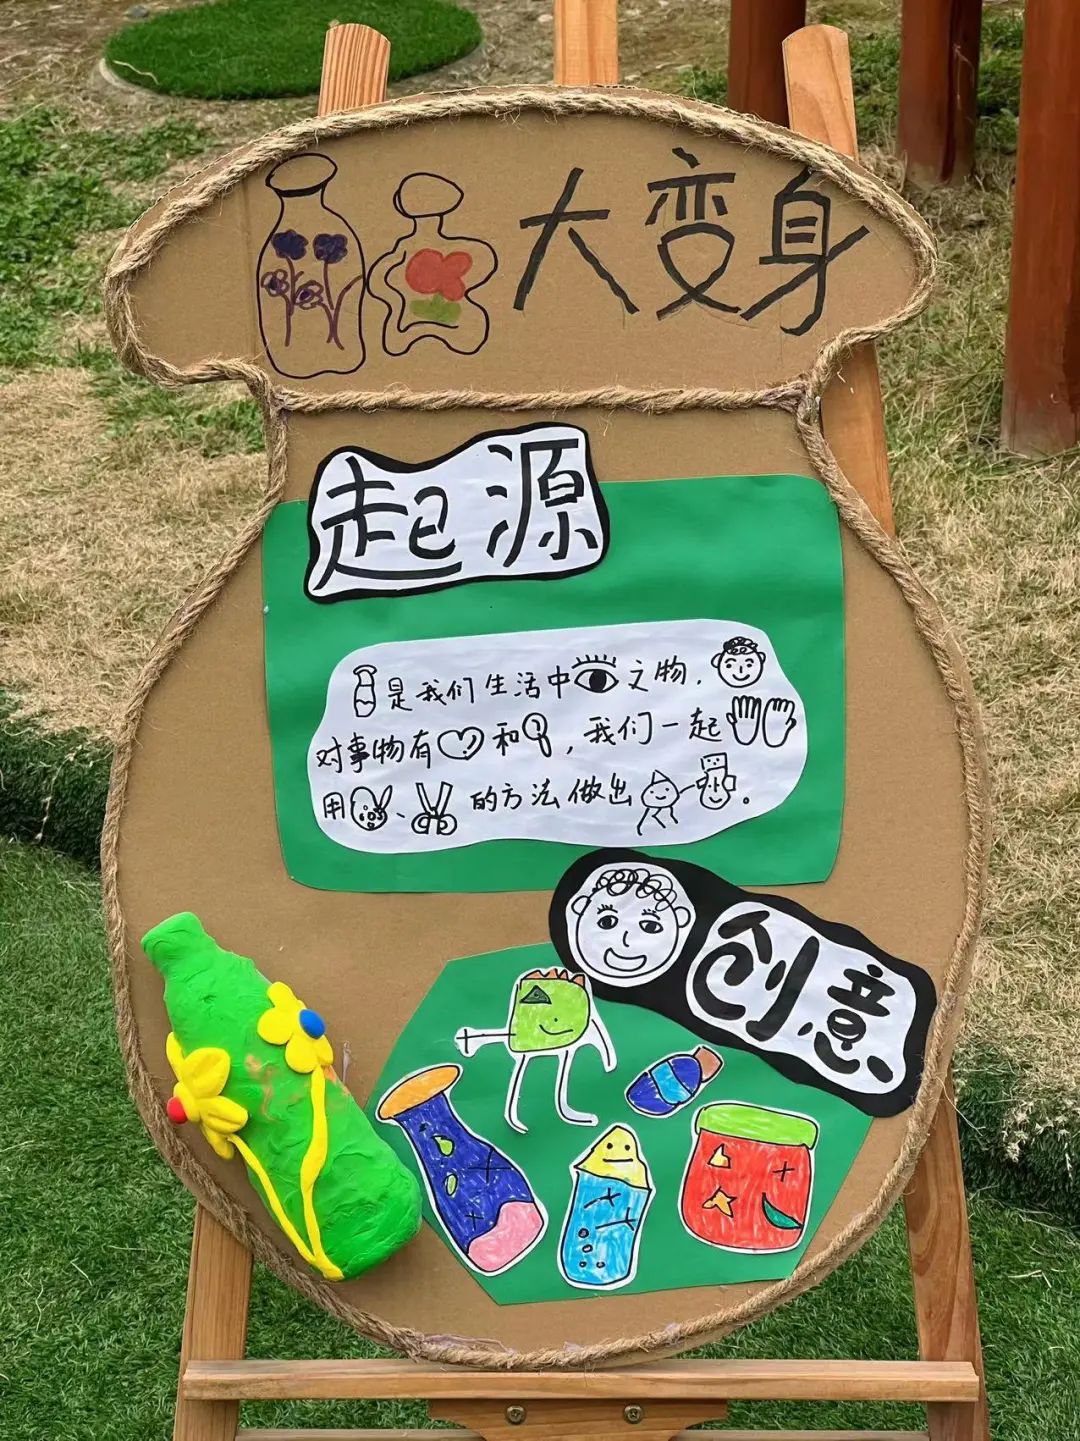 大变身
起源
是我们生活中 文物，
对事物有 和 ，我们一起
用 、 的方法做出 。
创意